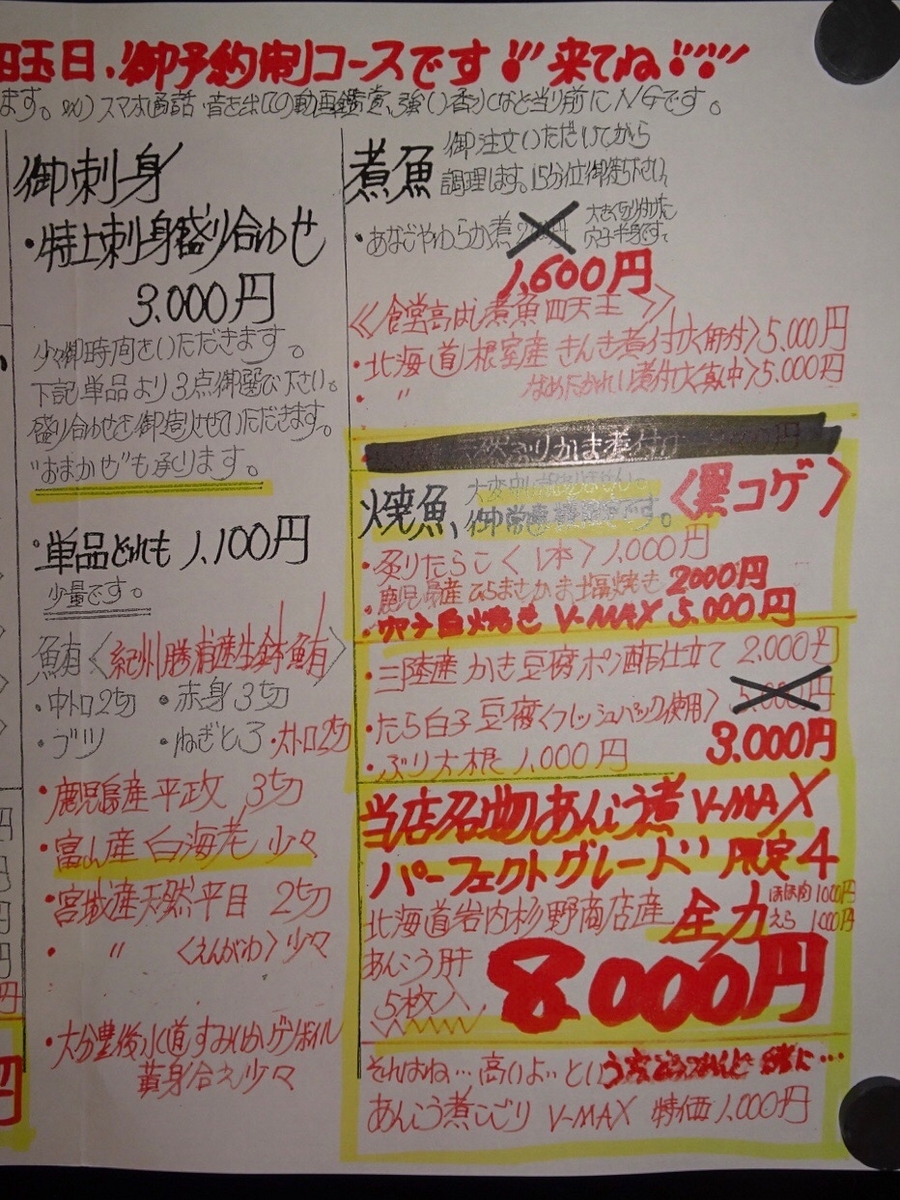 日、御予約制コースです!! 来てね!!!
ます。 スマホ通話・音を出しての動画鑑賞、強い香水など当り前にNGです。
御刺身
・特上刺身盛り合わせ
3.000円
少々御時間をいただきます。
下記単品より3点御選び下さい。
盛り合わせを御造りさせていただきます。
"おまかせ"も承ります。
・単品どれも 1,100円
少量です。
鮪〈紀州勝浦産生鉢鮪〉
・中トロ2切 ・赤身3切
・ブツ ・ねぎとろ ・大トロ2切
・鹿児島産平政 3切
・富山産 白海老 少々
・宮城産天然平目 2切
・ 〃 〈えんがわ〉少々
・大分豊後水道すみいかゲソボイル
黄身合え少々
煮魚 御注文いただいてから
調理します。15分位御待ち下さい。
・あなごやわらか煮
穴子半身です。
1,600円
《食堂高はし煮魚四天王》
・北海道根室産 きんき煮付〈〉5.000円
・ 〃 なめたかれい煮付〈真中〉5.000円
天然ぶりかま煮付
焼魚、
〈黒コゲ〉
・炙りたらこ〈1本〉1,000円
・鹿児島産ひらまさかま塩焼き 2000円
・穴子白焼き V-MAX 5.000円
・三陸産 かき豆腐ポン酢仕立て 2,000円
・たら白子豆腐〈フレッシュパック使用〉 5.000円
3.000円
・ぶり大根 1,000円
当店名物あんこう煮 V-MAX
パーフェクトグレード 限定4
北海道岩内杉野商店産 全力 ほほ肉1000円
えら 1000円
あんこう肝
5枚入
8000円
それはね…高いよ…という
あんこう煮こごり V-MAX 特価1,000円